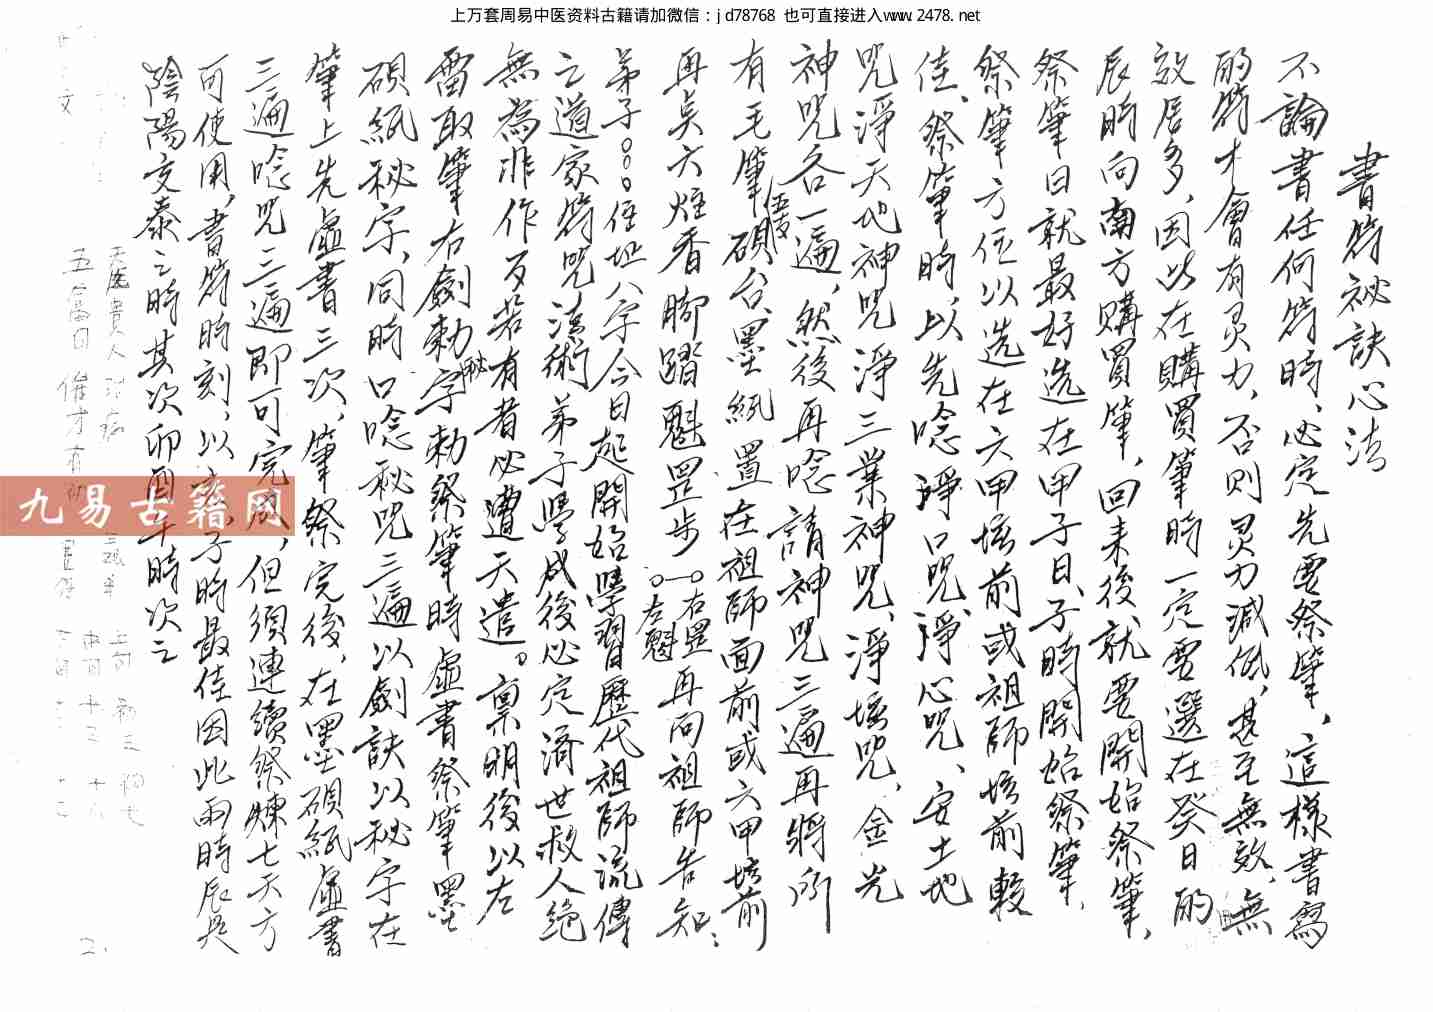 上万套周易中医资料古籍请加微信：jd78768 也可直接进入www.2478.net
書符祕訣心法
不論書任何符時、必定先要祭筆、這樣書寫
的符才會有灵力、否則灵力減低、甚至無效、無
效居多、因此在購買筆時一定要選在癸日的
辰時向南方購買筆、回来後、就要開始祭筆、
祭筆日就最好选在甲子日、子時開始祭筆、
祭筆方位以选在六甲壇前或祖師壇前較
佳、祭筆時以先唸淨口咒、淨心咒、安土地
咒淨天地神咒淨三業神咒、淨壇咒、金光
神咒各一遍、然後再唸請神咒三遍再將所
有毛筆硯台、墨紙置在祖師面前或六甲壇前
再奌六炷香脚踏魁罡步。右罡左魁再向祖師告知：
弟子○○○。住址八字今日起開始學習歷代祖師流傳
之道家符咒法術弟子學成後必定濟世救人絕
無為非作歹若有者必遭天遣。禀明後以左
雷取筆右劍勅秘字勅祭筆時虛書祭筆墨
硯紙秘字，同時口唸秘咒三遍以劍訣以秘字在
筆上先虛書三次，筆祭完後，在墨硯紙虛書
三遍唸咒三遍即可完成，但須連續祭煉七天方
可使用，書符時刻，以亥、子時最佳因此兩時辰是
陰陽交泰之時其次卯酉午時次之
九易古籍网
2.